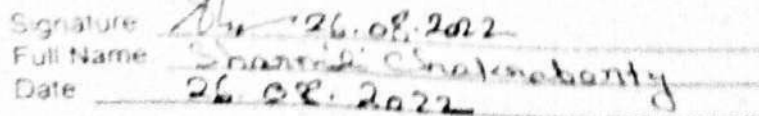 Signature 26.08.2022
Full Name Chakraborty
Date 26.08.2022